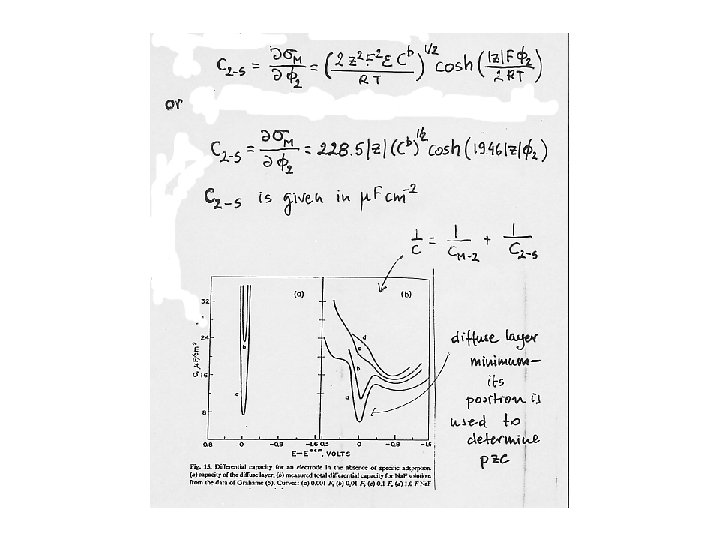 C₂₋ₛ = ∂σ_M/∂ϕ₂ = (2 z²F²ε C^b / RT)^1/2 cosh(|z|Fϕ₂ / 2RT)
or
C₂₋ₛ = ∂σ_M/∂ϕ₂ = 228.5|z|(C^b)^1/2 cosh(19.46|z|ϕ₂)
C₂₋ₛ is given in μF cm⁻²
1/C = 1/C_M-2 + 1/C₂₋ₛ
(a) (b)
32
24
16
8
0.8 0 -0.8 -1.6 0.5 0 -0.8 -1.6
VOLTS
diffuse layer
minimum-
its
position is
used to
determine
pzc
Fig. 13. Differential capacity for an electrode in the absence of specific adsorption.
(a) capacity of the diffuse layer; (b) measured total differential capacity for NaF solution
from the data of Grahame (5). Curves: (a) 0.001 F, (b) 0.01 F, (c) 0.1 F, (d) 1.0 F NaF